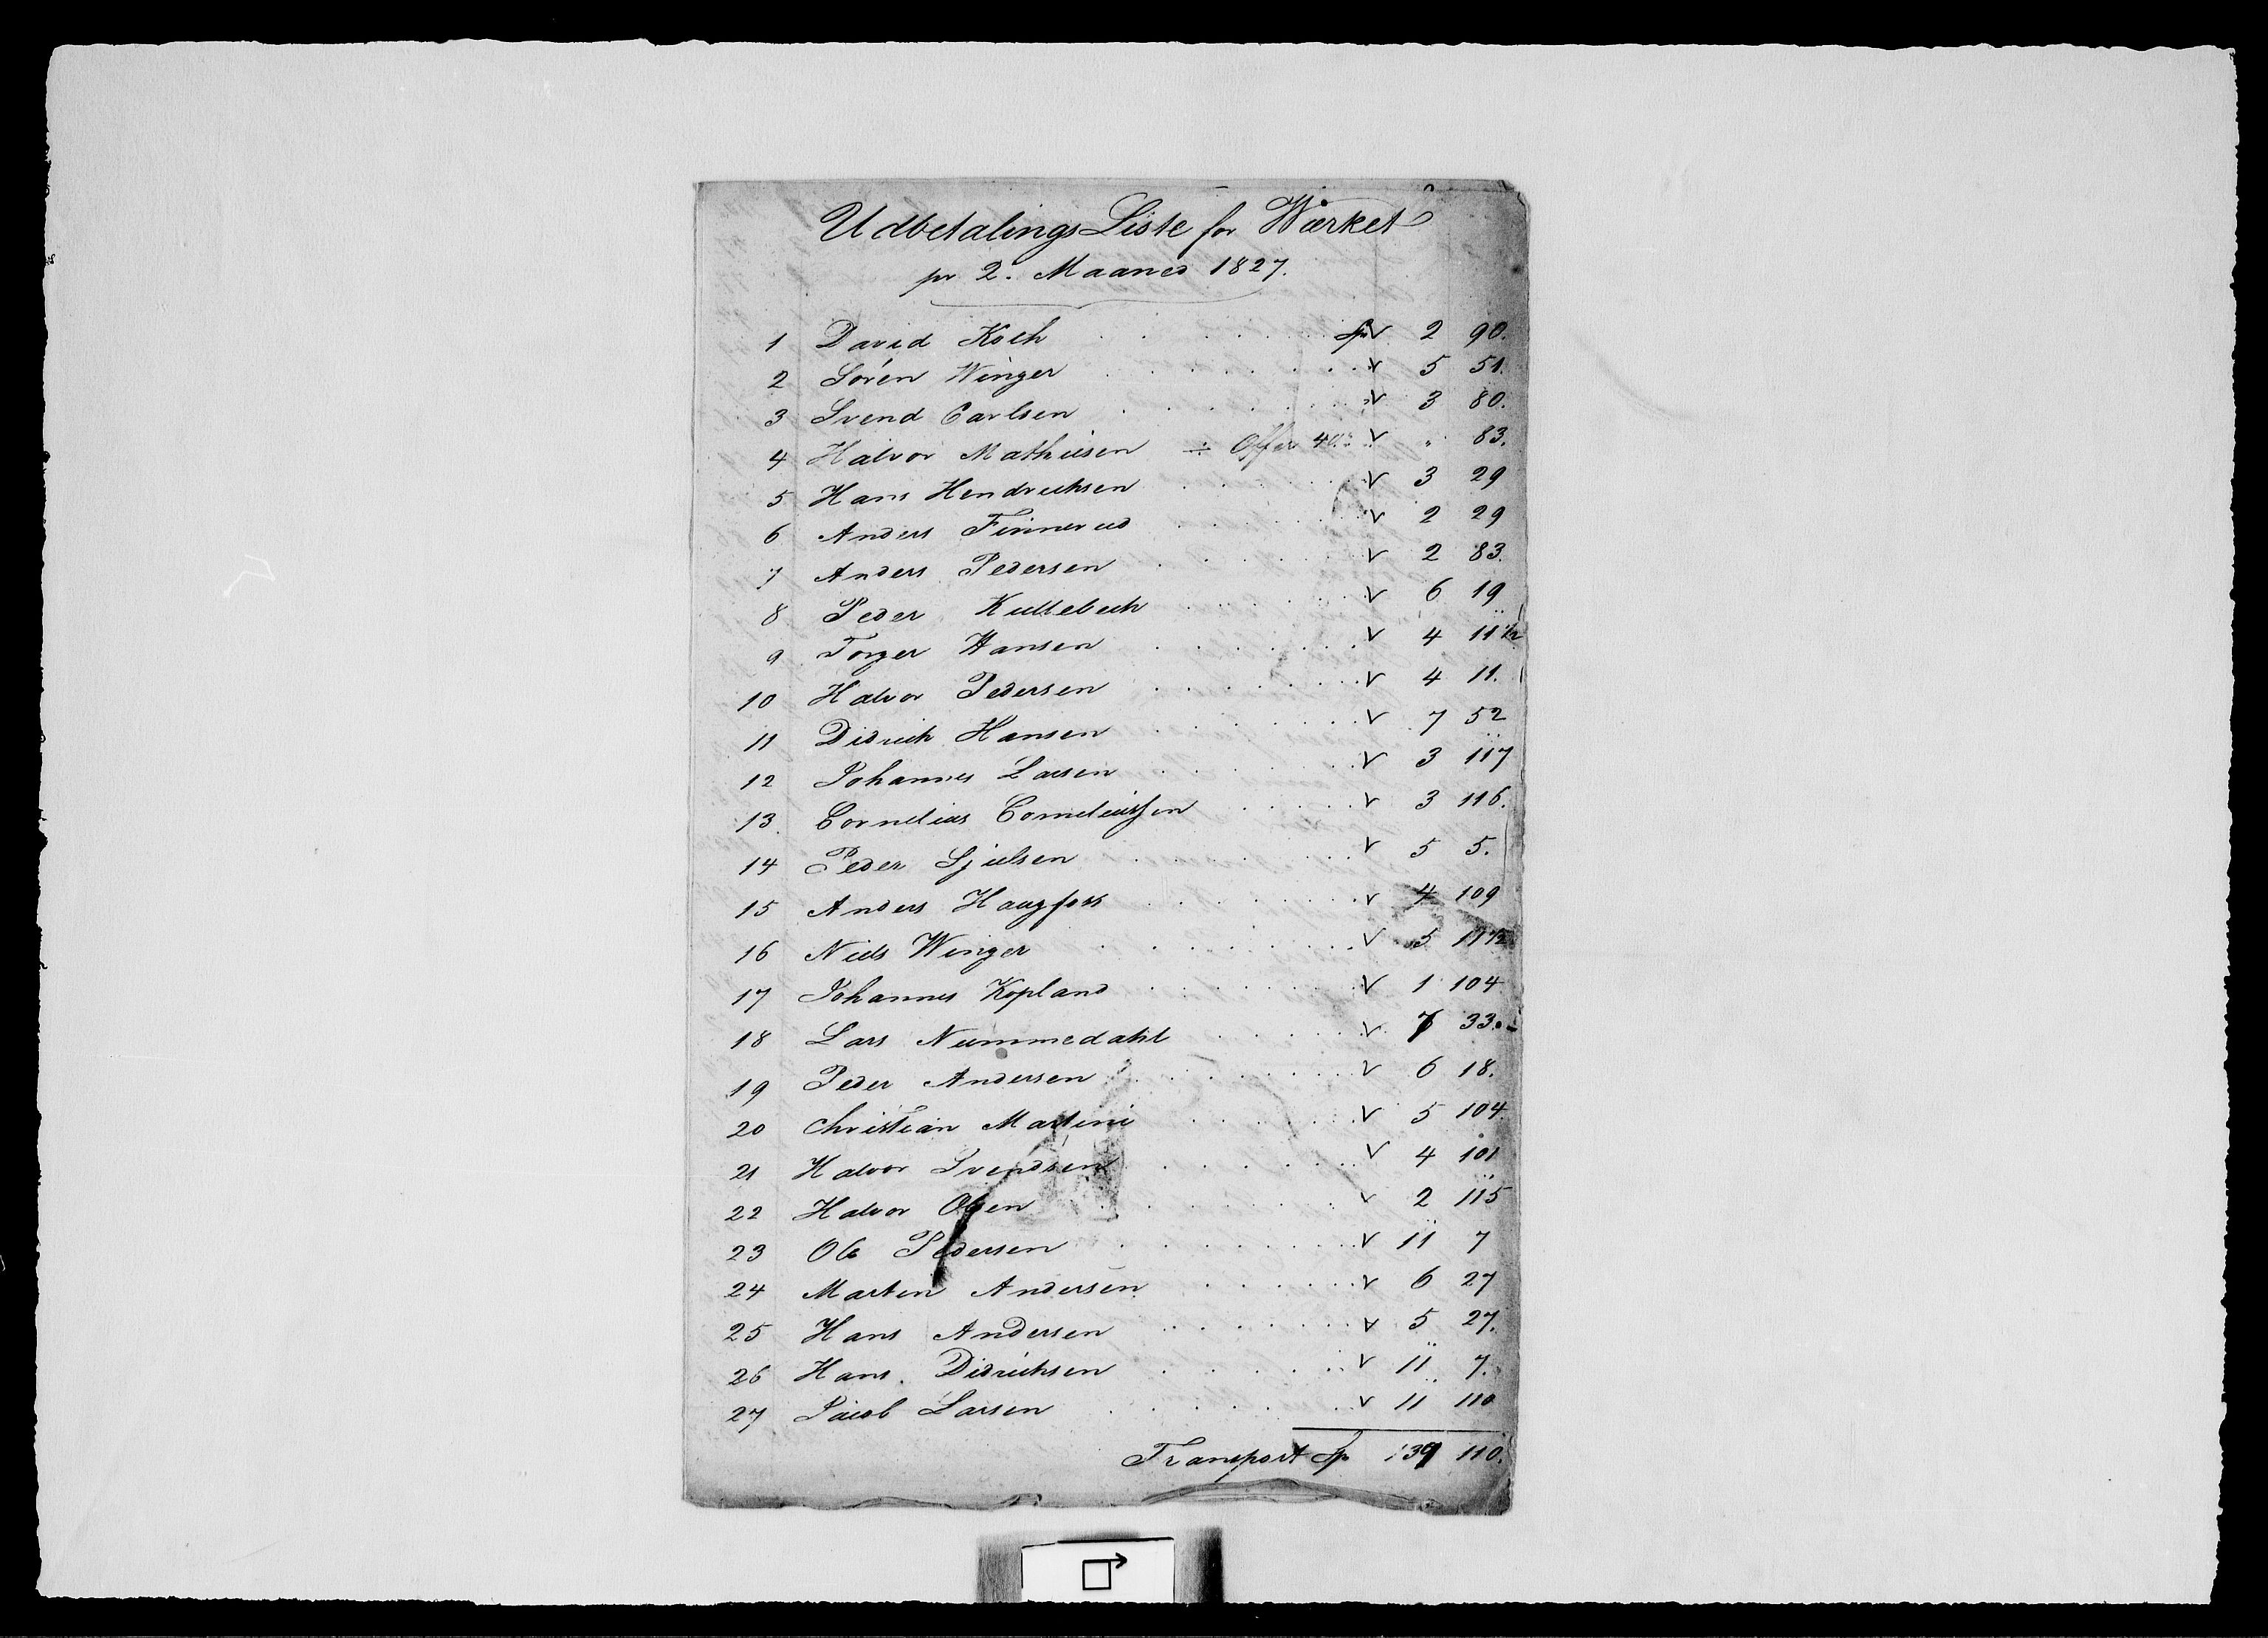 Udbetalings Liste for Wærket
pr 2. Maaned 1827.
1 David Koch . . . . . . Sp V 2 90.
2 Sören Winger . . . . . . V 5 51.
3 Svend Carlsen . . . . . . V 3 80.
4 Halvor Mathisen ÷ Offer 40.. V " 83.
5 Hans Hendrichsen . . . . . V 3 29
6 Anders Finnerud . . . . . V 2 29
7 Anders Pedersen . . . . . V 2 83.
8 Peder Kultebech . . . . . V 6 19
9 Torger Hansen . . . . . V 4 11 1/2
10 Halvor Pedersen . . . . . V 4 11.
11 Didrich Hansen . . . . . V 7 52
12 Johannes Larsen . . . . . V 3 117
13. Cornelius Corneliussen . . . . V 3 116.
14 Peder Gjulsen . . . . . V 5 5.
15 Anders Haugfoss . . . . . V 4 109
16 Niels Winger . . . . . . V 5 11 1/2
17 Johannes Kopland . . . . . V 1 104
18 Lars Nummedahl . . . . V 7 33.
19 Peder Andersen . . . . . V 6 18.
20 Christian Martini . . . . . V 5 104
21 Halvor Svendsen . . . . . V 4 101
22 Halvor Olsen . . . . . V 2 115
23 Ole Pedersen . . . . . V 11 7
24 Marten Andersen . . . . V 6 27
25 Hans Andersen . . . . . V 5 27.
26 Hans. Didrichsen . . . . . V 11 7.
27 Jacob Larsen . . . . . V 11 110
Transport Sp 139 110.